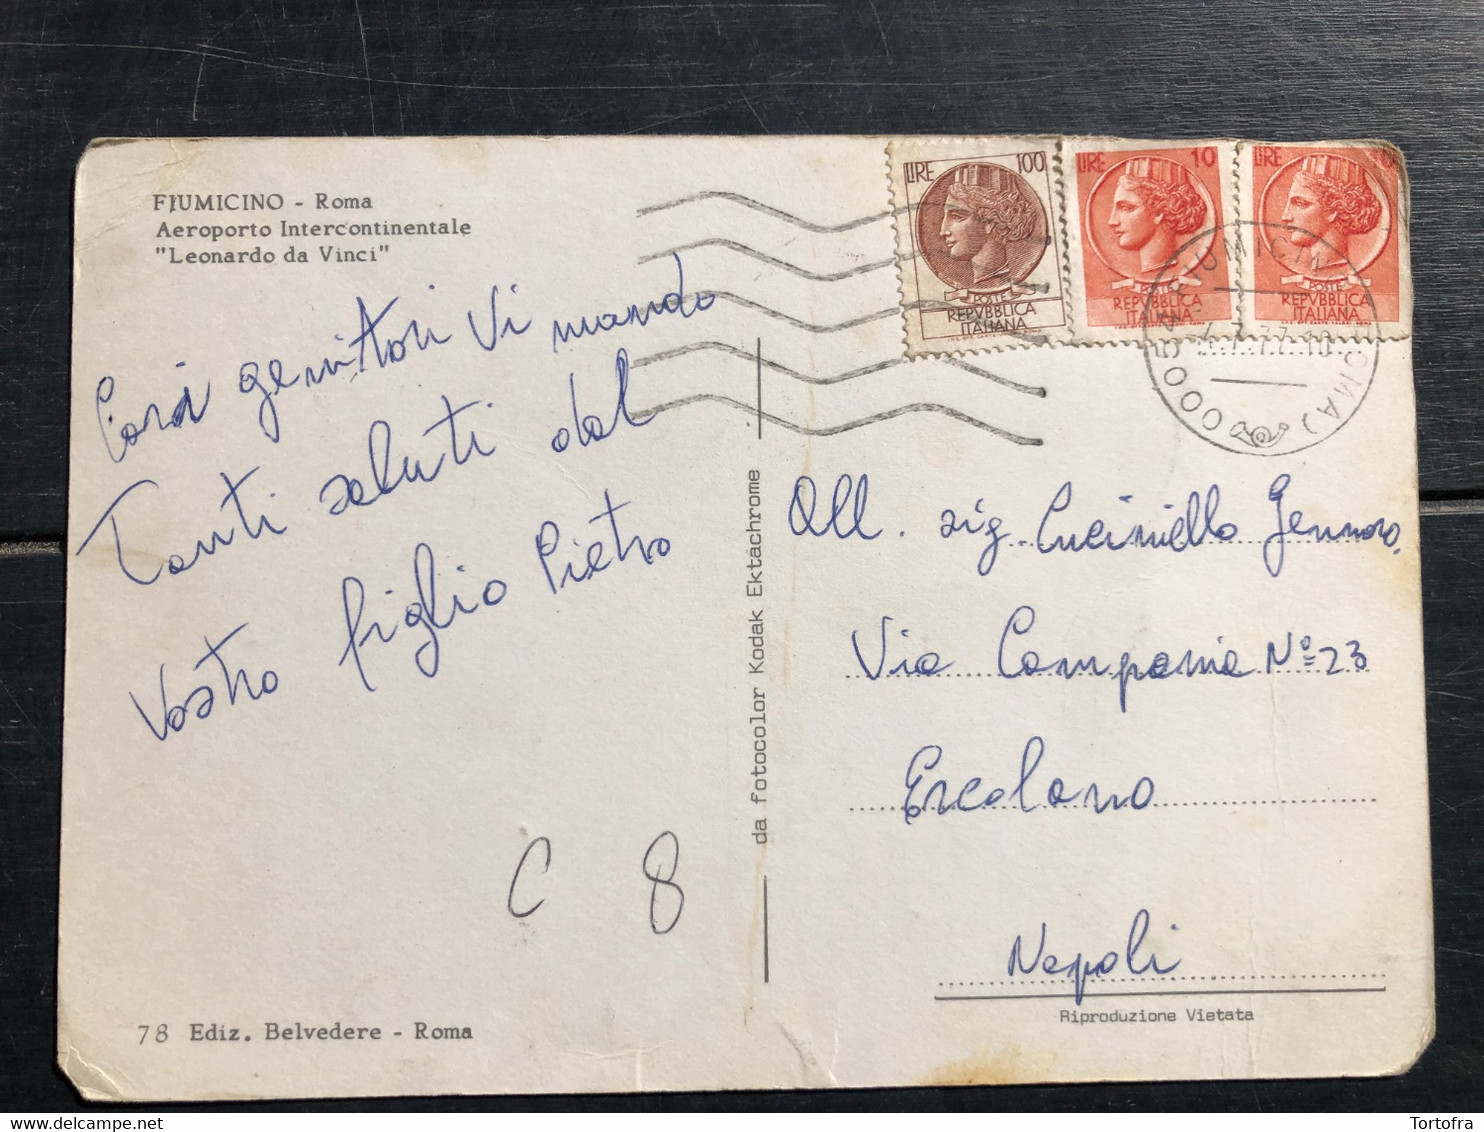 FIUMICINO - Roma
Aeroporto Intercontinentale
"Leonardo da Vinci"
Cari genitori Vi mando
Tanti saluti dal
Vostro figlio Pietro
C 8
78 Ediz. Belvedere - Roma
da fotocolor Kodak Ektachrome
LIRE 100
POSTE
REPVBBLICA
ITALIANA
LIRE 10
POSTE
REPVBBLICA
ITALIANA
LIRE
POSTE
REPVBBLICA
ITALIANA
All. sig. Cuciniello Gennaro.
Via Campania Nº 23
Ercolano
Napoli
Riproduzione Vietata
Tortofra